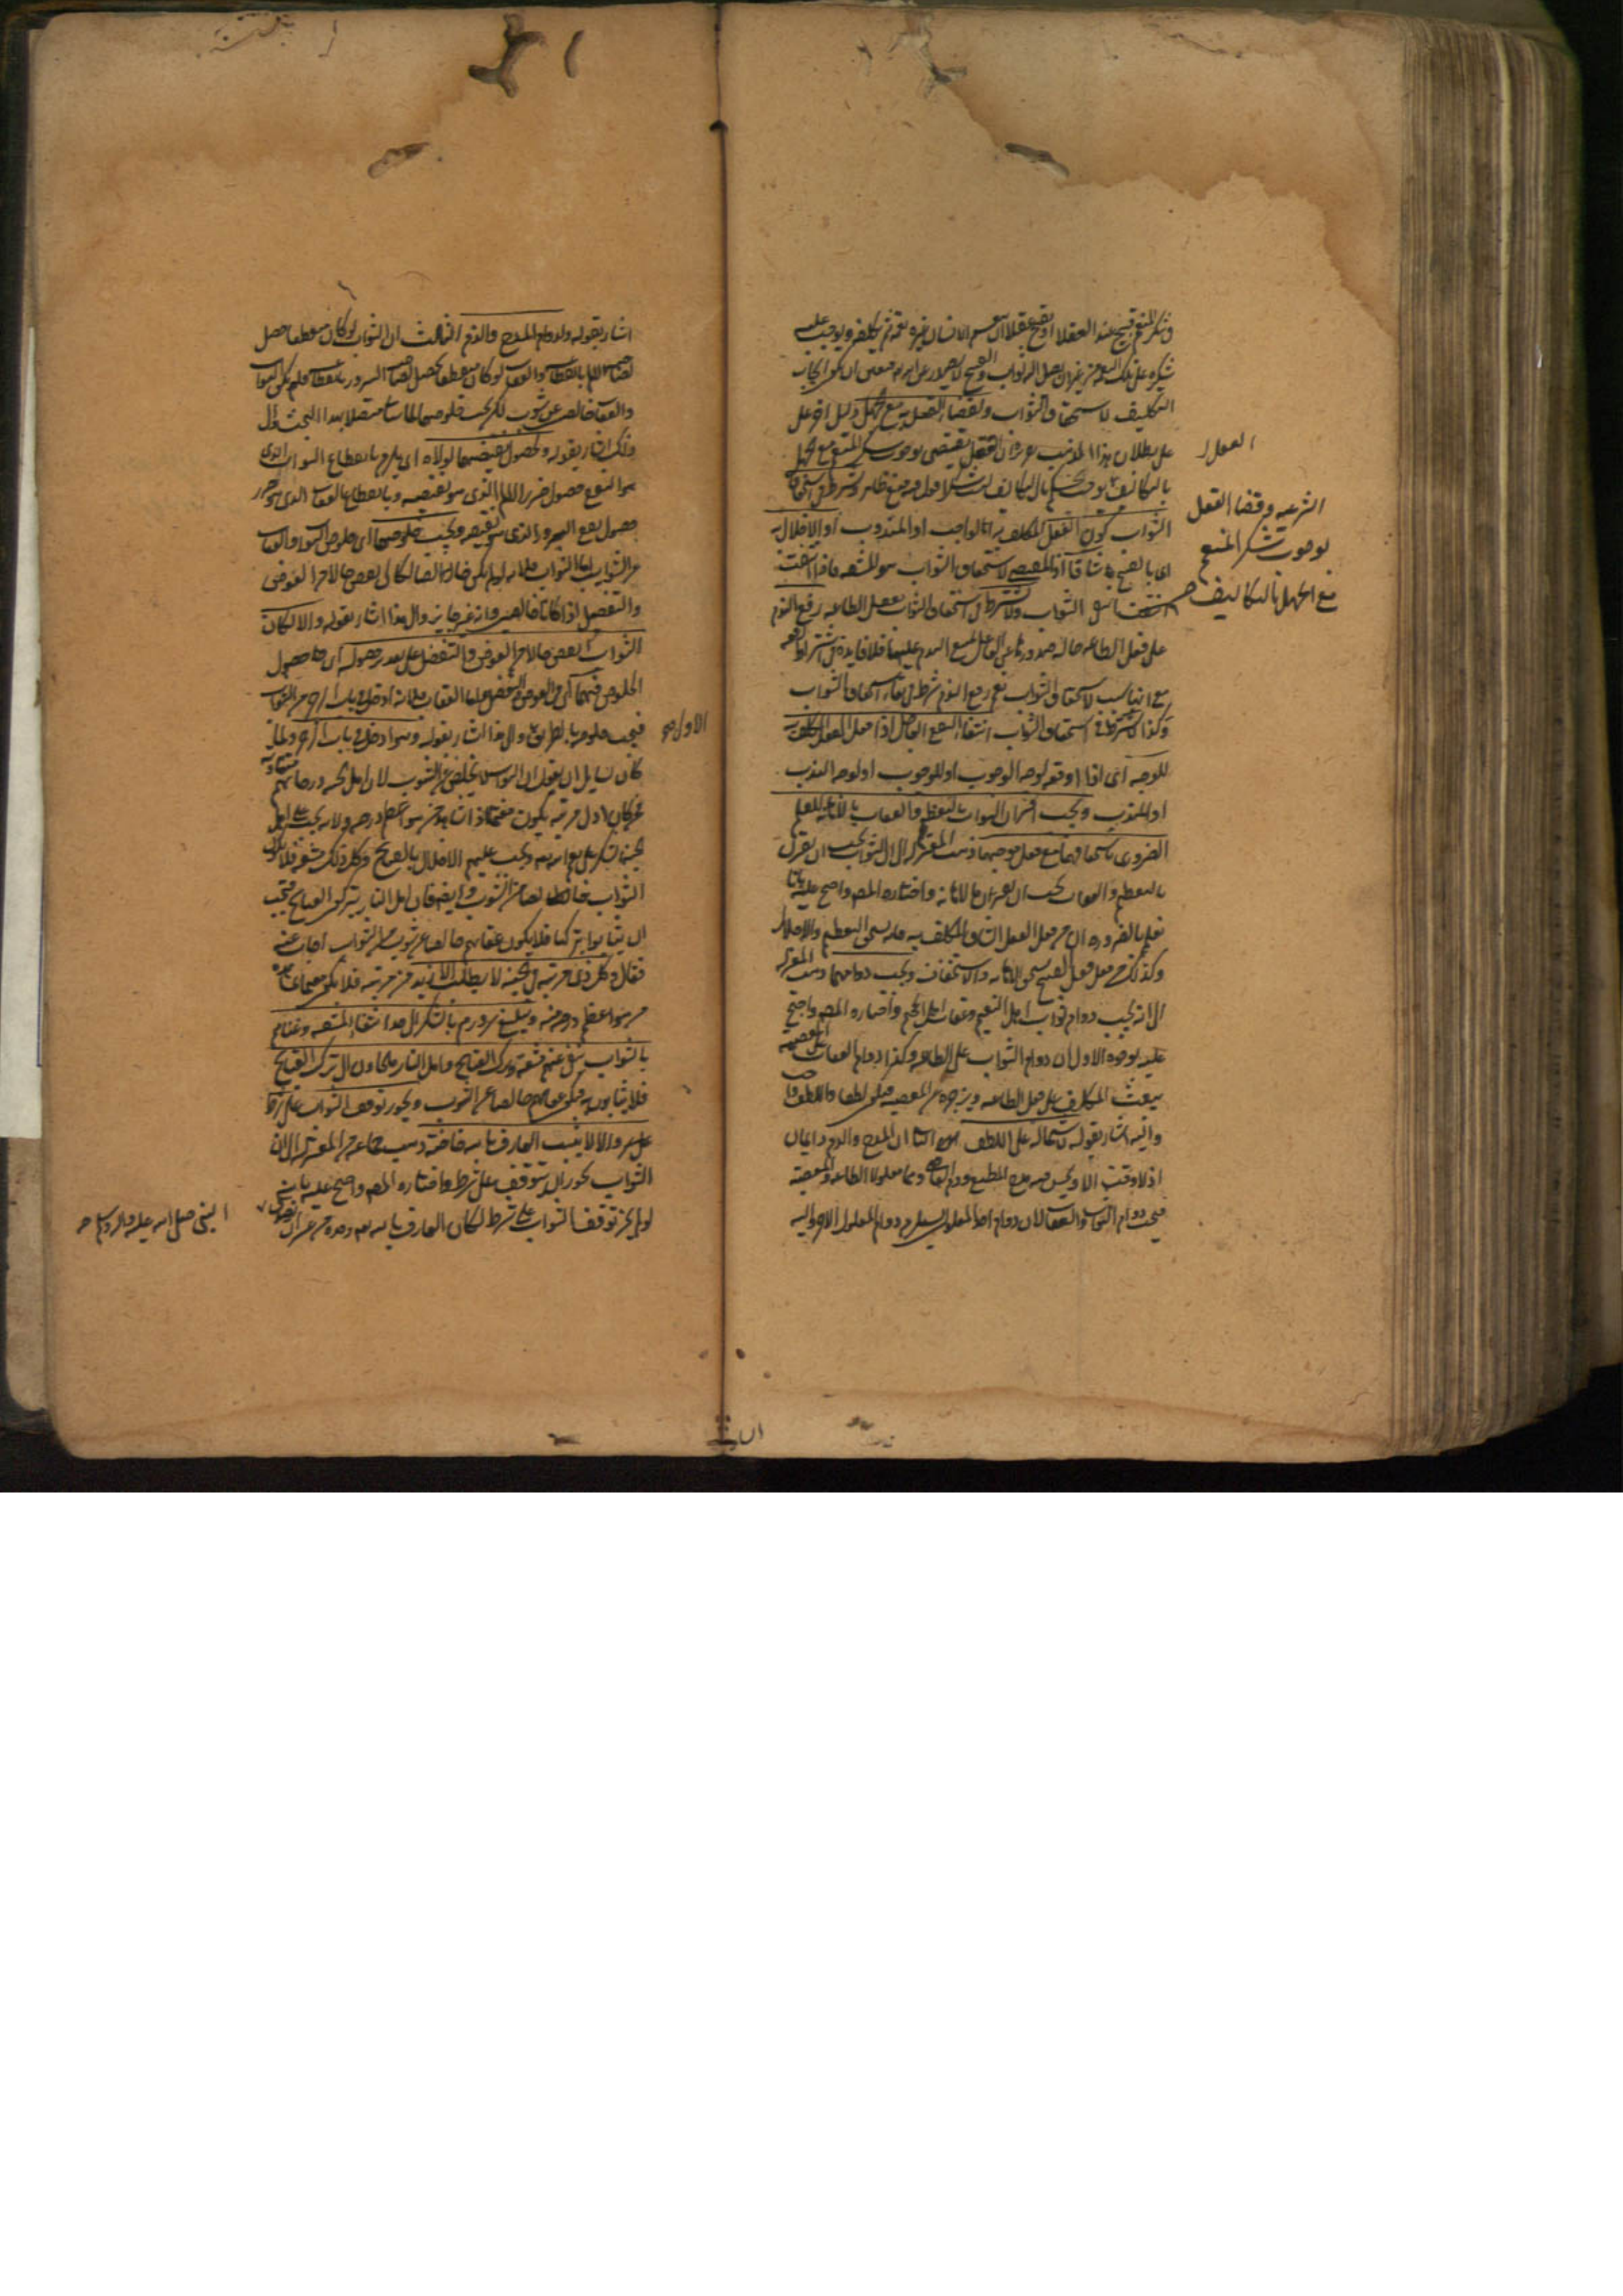 وشكر المنعم قبيح عند العقلا اذ يقبح عقلا ان ينعم الانسان غيره نعمة ثم يكلفه ويوجب عليه
شكره على تلك النعمة من غير ان يصل اليه ثواب والقبيح لا يصدر عن الله تعالى ان يكون ايجاب
التكليف لاستحقاق الثواب ولقضاء العقل به مع الجهل دليل اخر على
على بطلان هذا المذهب تقريره ان العقل يقتضي بوجوب شكر المنعم مع الجهل
بالتكاليف
الثواب كون الفعل المكلف به اى الواجب او المندوب او الاخلال به
اى بالقبيح شاقا اذ المقتضى لاستحقاق الثواب هو المشقة فاذا انتفت
انتفى الثواب ولا يشترط فى استحقاق الثواب بفعل الطاعة رفع الندم
على فعل الطاعة حالة صدورها عن الفاعل لمنع الندم عليها فلا فايدة فى اشتراط رفعه
نعم رفع الندم شرط فى بقاء استحقاق الثواب
وكذا لا يشترط فى استحقاق الثواب انتفاء النفع العاجل اذا فعل الفعل المكلف به
للوجه اى اذا اوقعه لوجه الوجوب او للوجوب او لوجه الندب
او للندب ويجب اقتران الثواب بالتعظيم والعقاب بالاهانة للعلم
الضرورى باستحقاقهما مع فعل موجبهما ذهب المعتزلة الى ان الثواب يجب ان يقترن
بالتعظيم والعقاب يجب ان يقترن بالاهانة واختاره المصه واحتج عليه بانا
نعلم بالضرورة ان من فعل الفعل الشاق المكلف به فانه يستحق التعظيم والاجلال
وكذلك من فعل فعل القبيح يستحق الاهانة والاستخفاف ويجب دوامهما ذهب المعتزلة
الى انه يجب دوام ثواب اهل النعيم وعقاب اهل الجحيم واختاره المصه واحتج
عليه بوجوه الاول ان دوام الثواب على الطاعة وكذا دوام العقاب على المعصية
يبعث المكلف على فعل الطاعة ويزجره عن المعصية فيكون لطفا واللطف واجب
واليه اشار بقوله لاشتماله على اللطف الثانى ان المدح والذم دايمان
اذ لا وقت الا ويحسن فيه مدح المطيع وذم العاصى وهما معلولا الطاعة والمعصية
فيجب دوام الثواب والعقاب لان دوام احد المعلولين يستلزم دوام المعلول الاخر واليه
العقل
الشرعيه وقضا العقل
بوجوب شكر المنعم
مع الجهل بالتكاليف
اشار بقوله ولدوام المدح والذم الثالث ان الثواب لو كان منقطعا حصل
لصاحبه الالم بانقطاعه والعقاب لو كان منقطعا يحصل لصاحبه السرور بانقطاعه فلم يكن الثواب
والعقاب خالصين عن شوب لكن يجب خلوصهما
ذلك اشار بقوله ولحصول نقيضهما لولاه اى يلزم بانقطاع الثواب الذى
هو النفع حصول ضرر الالم الذى هو نقيضه وبانقطاع العقاب الذى هو ضرر
حصول نفع السرور الذى هو نقيضه ويجب خلوصهما اى خلوص الثواب والعقاب
عن الشوايب اما الثواب فلانه لو لم يكن خالصا لكان انقص حالا من العوض
والتفضل اذا كانا خالصين وانه غير جايز والى هذا اشار بقوله والا لكان
الثواب انقص حالا من العوض والتفضل على تقدير حصوله اى حصول
الخلوص فيهما اى فى العوض والتفضل واما العقاب فلانه ادخل فى باب الزجر من الثواب
فيجب خلوصه بالطريق والى هذا اشار بقوله وهو ادخل فى باب الزجر ولما
كان لسايل ان يقول ان الثواب لا يخلص عن الشوب لان اهل الجنة درجاتهم متفاوته
فمن كان ادنى مرتبة يكون مغتما اذا شاهد من هو اعظم درجة ولانه يجب على اهل
الجنة الشكر على نعم الله تعالى ويجب عليهم الاخلال بالقبايح وكل ذلك مشقة فلا يكون
الثواب خالصا عن الشوب وايضا فان اهل النار يتركون القبايح فيجب
ان يثابوا بتركها فلا يكون عقابهم خالصا عن شوب من الثواب اجاب عنه
فقال وكل ذى مرتبة فى الجنة لا يطلب الازيد من مرتبته فلا يكون مغتما بمشاهدة
من هو اعظم درجة منه ويبلغ سرورهم بالشكر الى حد انتفاء المشقة وغناهم
بالثواب ينفى عنهم مشقة ترك القبايح واهل النار ملجاون الى ترك القبايح
فلا يثابون به فيكون عقابهم خالصا عن الشوب ويجوز توقف الثواب على شرط
والا لاثيب العارف بالله خاصة ذهب جماعة من المعتزلة الى ان
الثواب يجوز ان يتوقف على شرط واختاره المصه واحتج عليه بانه
لو لم يجز توقف الثواب على شرط لكان العارف بالله تعالى وحده من غير ان
الاولى صح
النبى صلى الله عليه واله وسلم صح